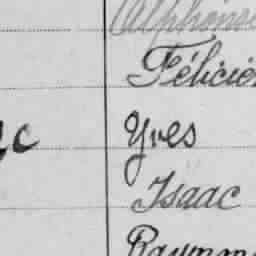 Alphonse
Félicien
Yves
Isaac
Raymond